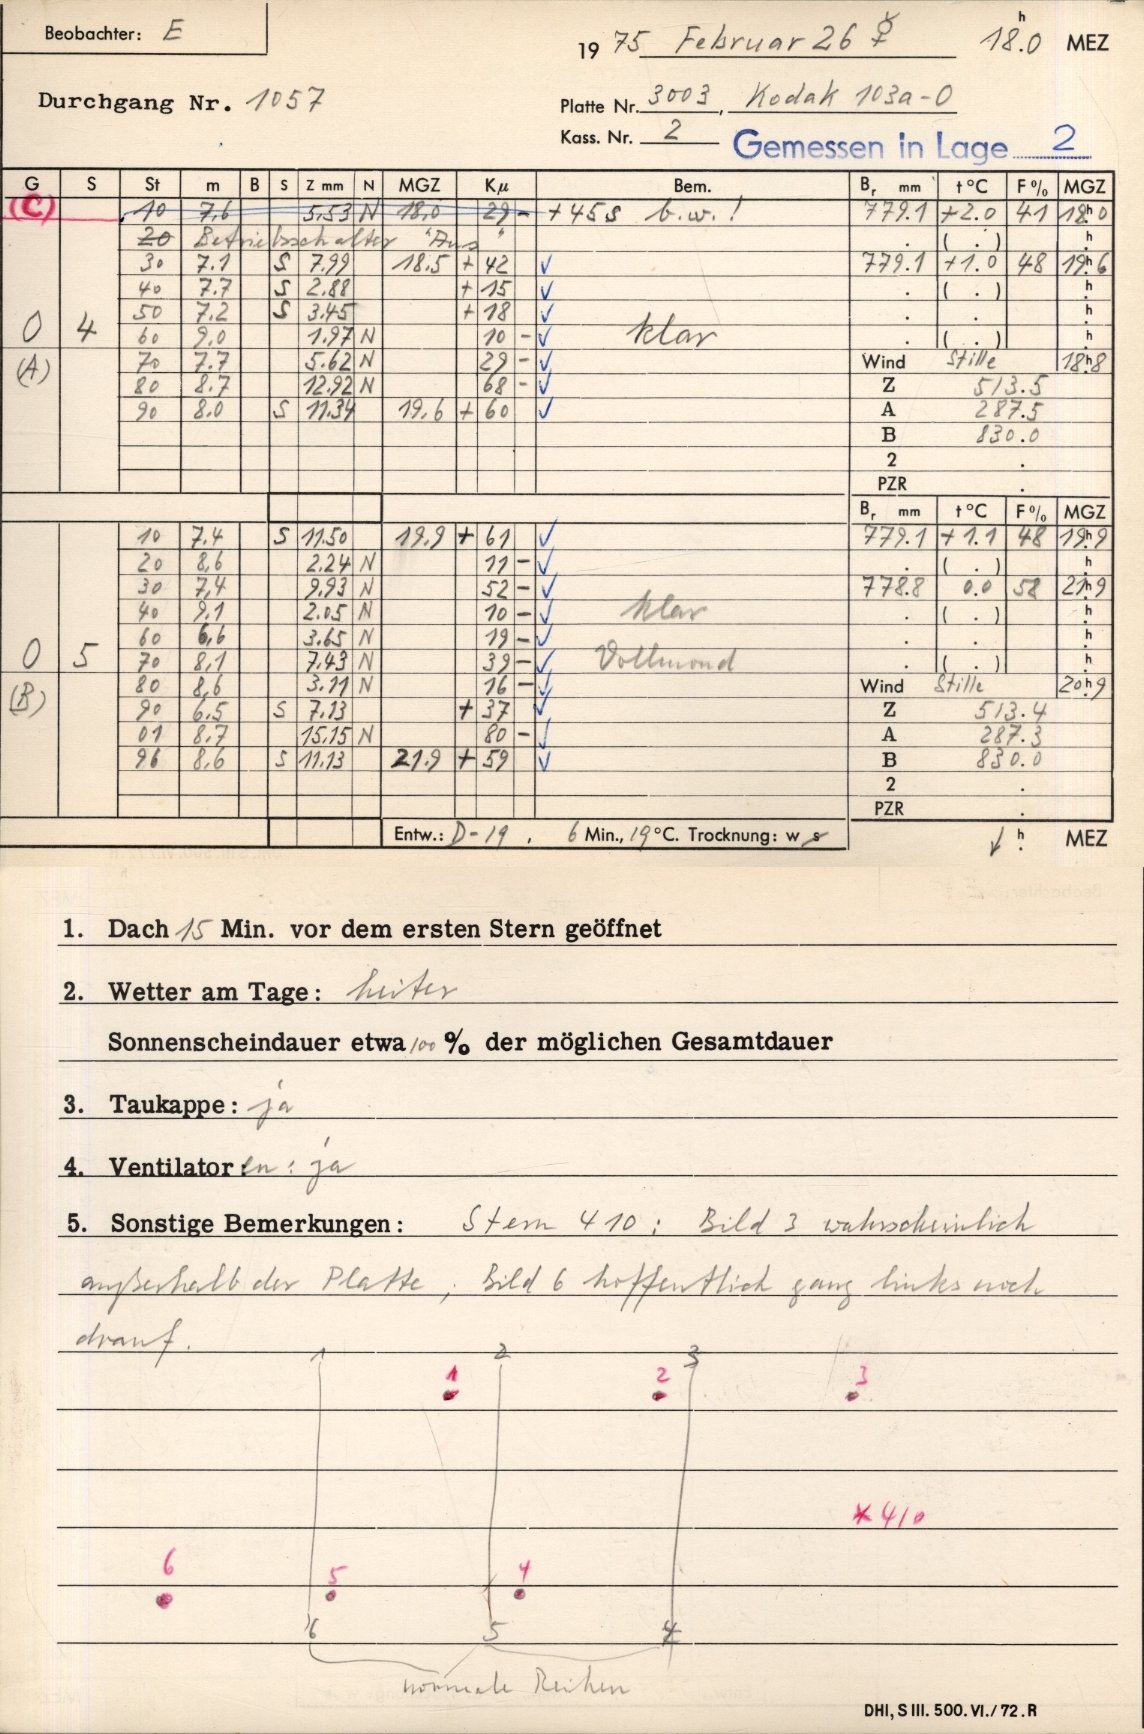 Beobachter: E
19 75 Februar 26 ☿ 18.0 h MEZ
Durchgang Nr. 1057
Platte Nr. 3003, Kodak 103a-O
Kass. Nr. 2 Gemessen in Lage 2
G S St m B S Z mm N MGZ Kμ Bem. Br mm t °C F % MGZ
(C) 10 7,6 5,53 N 18,0 29 - +45s b.w.! 779.1 +2.0 41 18h0
20 Betriebsschalter "Aus" . ( . ) h
30 7.1 S 7.99 18.5 + 42 ✓ 779.1 +1.0 48 19h6
40 7.7 S 2.88 + 15 ✓ . ( . ) h
50 7.2 S 3.45 + 18 ✓ . . h
0 4 60 9,0 1.97 N 10 - ✓ klar . ( . ) h
(A) 70 7.7 5.62 N 29 - ✓ Wind Stille 18h8
80 8.7 12.92 N 68 - ✓ Z 513.5
90 8.0 S 11.34 19,6 + 60 ✓ A 287.5
B 830.0
2 .
PZR .
Br mm t °C F % MGZ
10 7,4 S 11.50 19.9 + 61 ✓ 779.1 +1.1 48 19h9
20 8,6 2.24 N 11 - ✓ . ( . ) h
30 7,4 9.93 N 52 - ✓ 778.8 0.0 58 21h9
40 9,1 2.05 N 10 - ✓ klar . ( . ) h
60 6,6 3.65 N 19 - ✓ . . h
0 5 70 8,1 7.43 N 39 - ✓ Vollmond . ( . ) h
(B) 80 8,6 3.11 N 16 - ✓ Wind Stille 20h9
90 6.5 S 7.13 + 37 ✓ Z 513.4
01 8.7 15.15 N 80 - ✓ A 287.3
96 8,6 S 11.13 21.9 + 59 ✓ B 830.0
2 .
PZR .
Entw.: D-19, 6 Min., 19 °C. Trocknung: w s h MEZ
1. Dach 15 Min. vor dem ersten Stern geöffnet
2. Wetter am Tage: heiter
Sonnenscheindauer etwa 100 % der möglichen Gesamtdauer
3. Taukappe: ja
4. Ventilator:en: ja
5. Sonstige Bemerkungen: Stern 410: Bild 3 wahrscheinlich
außerhalb der Platte, Bild 6 hoffentlich ganz links noch
drauf.
1 2 3
1 2 3
*410
6 5 4
6 5 4
normale Reihen
DHI, S III. 500. VI./72. R